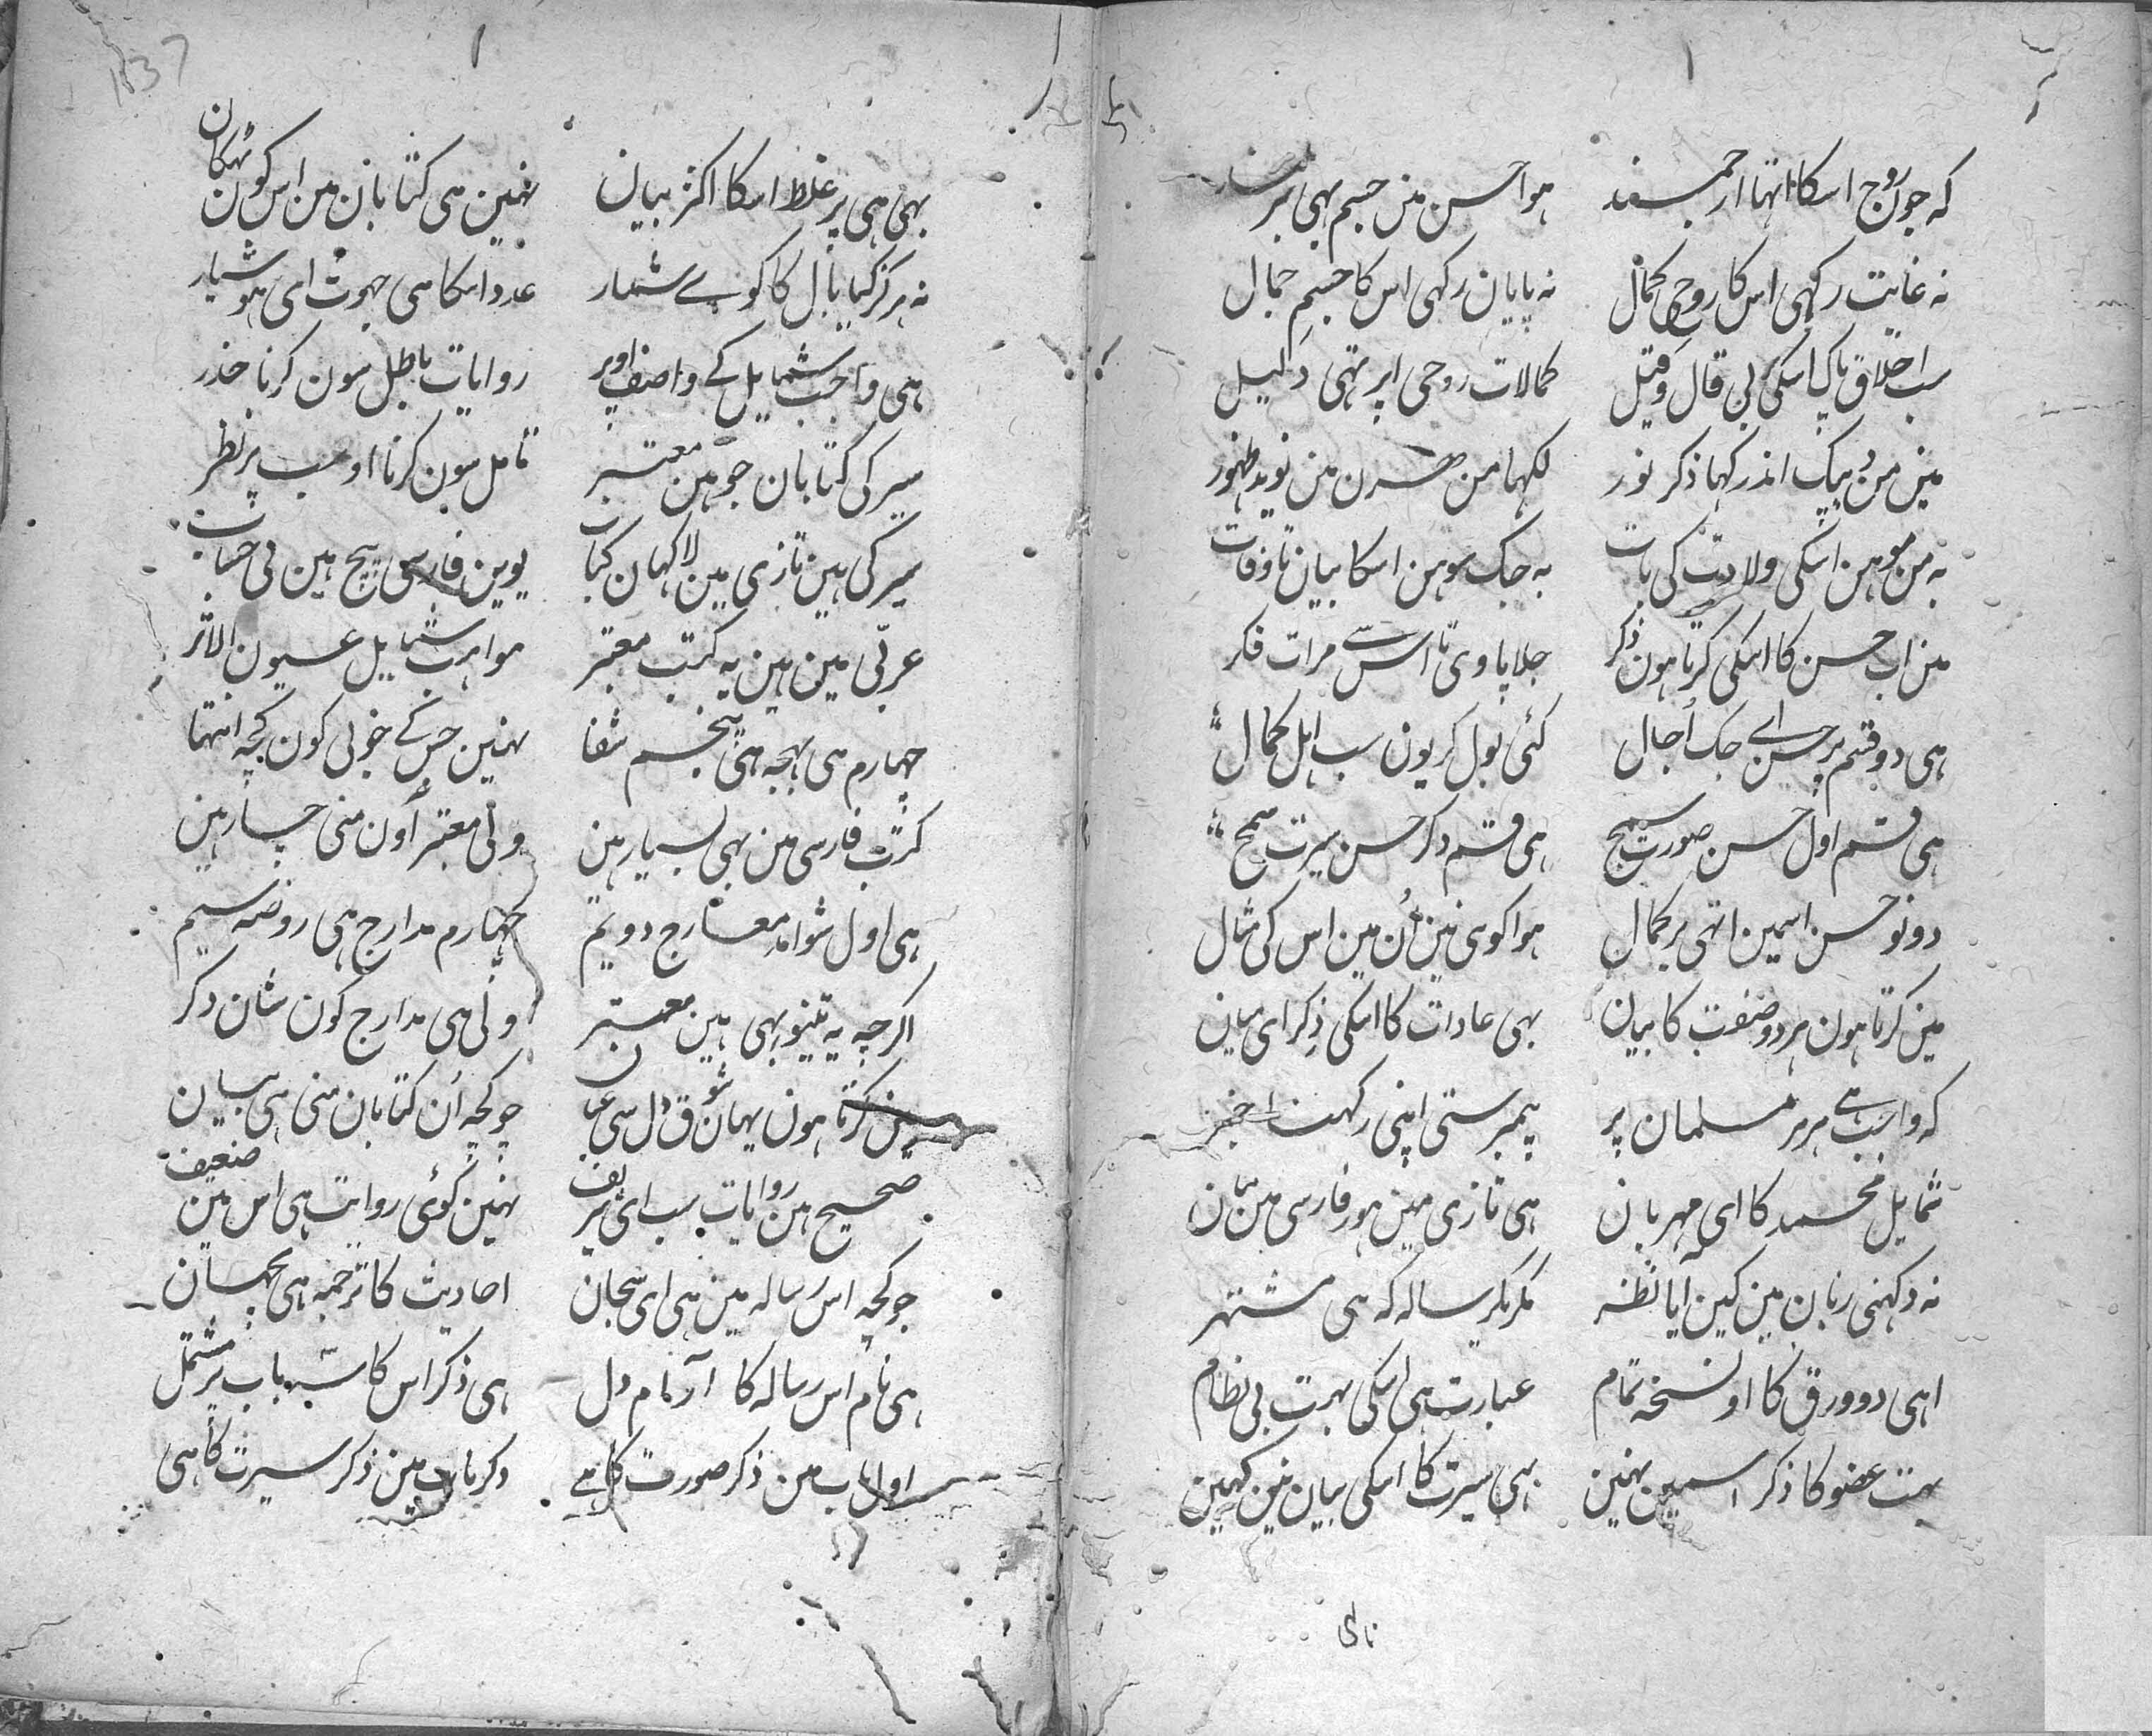 که جون روح اسکا اتھا ارجمند ہوا حسن من جسم بھی
نه غایت رکھی اس کا روح کمال نه پایان رکھی اس کا جسم جمال
سب اخلاق پاک اسکی بی قال و قیل کمالات روحی اپر تھی دلیل
مین من دیپک اندر کھا ذکر نور لکھا من ھرن من نوید ظهور
به من موهن اسکی ولادت کی بات به جک سوهن اسکا بیان تا وفات
من اب حسن کا اسکی کرتا هون ذکر جلا پاوی تا اس سے مرات فکر
هی دو قسم پر حسن اے جک اُجال گئی بول کر یون سب اهل کمال
هی قسم اول حسن صورت سمج هی قسم دکر حسن سیرت سمج
دونو حسن اسمین اتھی پر کمال هوا کوی نین اُن مین اس کی مثال
مین کرتا هون هر دو صفت کا بیان بھی عادات کا اسکی ذکر ای میان
که واجب هے هر هر مسلمان پر پیمبر ستی اپنی رکھنا خبر
شمایل محمد کا ای مهربان هی تازی مین هور فارسی مین
نه دکھنی زبان مین کین آیا نظر مگر یکر ساله که هی مشتهر
اهی دو ورق کا او نسخه تمام عبارت هی اسکی بهت بی نظام
بهت عضو کا ذکر اسمین نهین بھی سیرت کا اسکی بیان نین کهین
نا ای
1837
بھی هی پر غلط اسکا اکثر بیان نهین هی کتابان من اس کون
نه هرگز کیا بال کا کوے شمار عدد اسکا هی جھوٹ ای هوشیار
هی واجب شمایل کے واصف اوپر روایات باطل سون کرنا حذر
سیر کی کتابان جو هین معتبر تامل سون کرنا او سب پر نظر
سیر کی هین تازی مین لاکهان کتاب یوین فارسی بیچ هین بی حساب
عربی مین هین یه کتب معتبر مواهب شمایل عیون الاثر
چهارم هی بهجه هی پنجم شفا نهین جس کے خوبی کون کچه انتها
کتب فارسی من بھی بسیار هین ولی معتبر اُون منی چار هین
هی اول شواهد معارج دویم چهارم مدارج هی روضه سیم
اگرچه یه تینو بھی هین معتبر ولی هی مدارج کون شان دکر
مین کرتا هون یهان شوق دل سی عیان جو کچه اُن کتابان منی هی بیان
صحیح هین روایات سب ای شریف نهین کوئی روایت هی اس مین ضعیف
جو کچه اس رساله مین هی ای سجان احادیث کا ترجمه هی پچھان
هی نام اس رساله کا آرام دل هی ذکر اس کا سه باب پر مشتمل
اول باب من ذکر صورت کا هے دکر باب مین ذکر سیرت کا هی